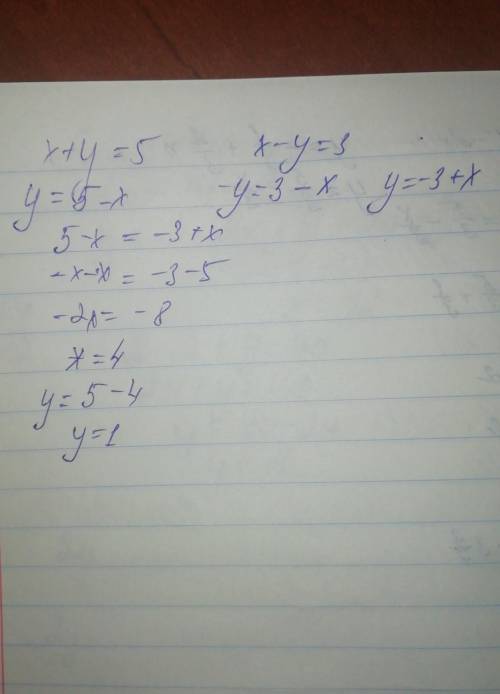 x+y=5 x-y=3
y=5-x -y=3-x y=-3+x
5-x=-3+x
-x-x=-3-5
-2x=-8
x=4
y=5-4
y=1